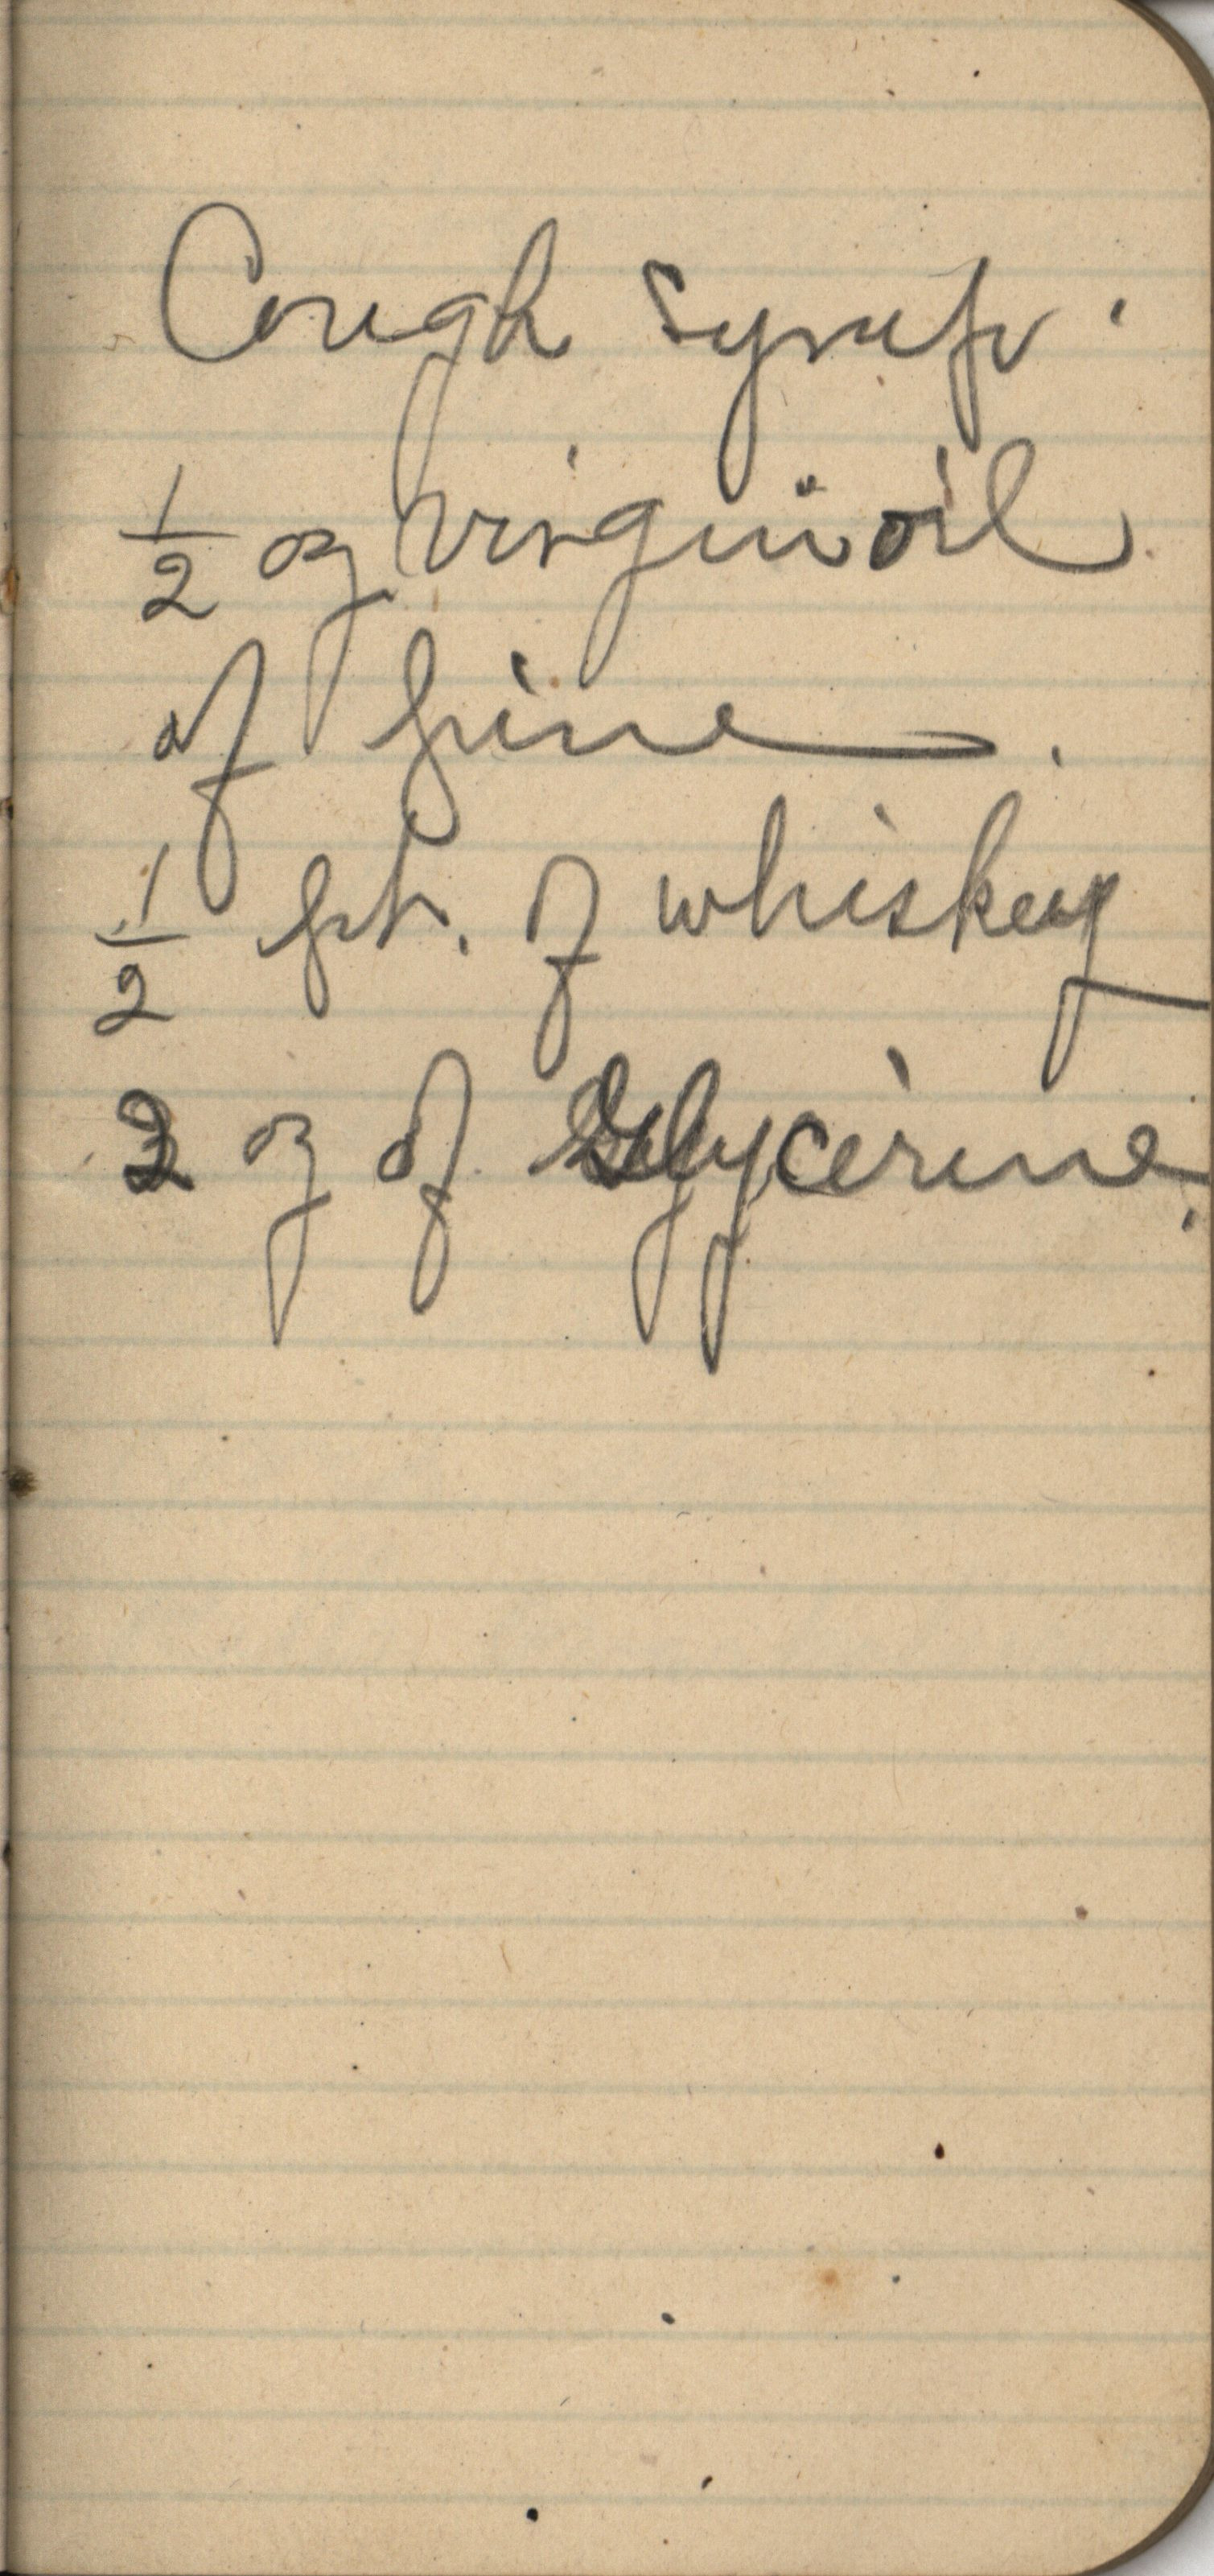 Cough Syrup.
1/2 oz virgin oil
of pine.
1/2 pt. of whiskey
2 oz of Glycerine.